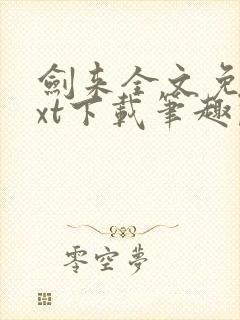 劍来全文免
xt下載筆趣
零空夢